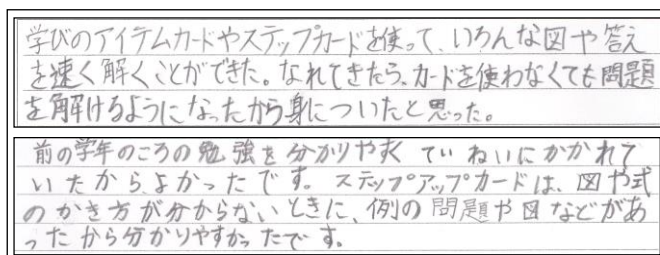 学びのアイテムカードやステップカードを使って、いろんな図や答え
を速く解くことができた。なれてきたら、カードを使わなくても問題
を解けるようになったから身についたと思った。
前の学年のころの勉強を分かりやすく ていねいにかかれて
いたから、よかったです。ステップアップカードは、図や式
のかき方が分からないときに、例の問題や図などがあ
ったから分かりやすかったです。